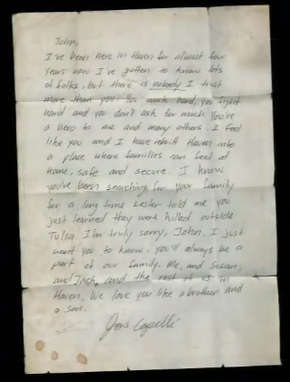 John,
I've been here in Haven for almost four
years now I've gotten to know lots
of folks, but there is nobody I trust
more than you. You work hard, you fight
hard and you don't ask for much. You're
a hero to me and many others. I feel
like you and I have rebuilt Haven into
a place where families can feel at
home, safe and secure. I know
you've been searching for your family
for a long time. Lester told me you
just learned they were killed outside
Tulsa. I'm truly sorry, John. I just
want you to know. You'll always be a
part of our family. Me, and Susan,
and Josh, and the rest of us in
Haven. We love you like a brother and
a son.
Capelli